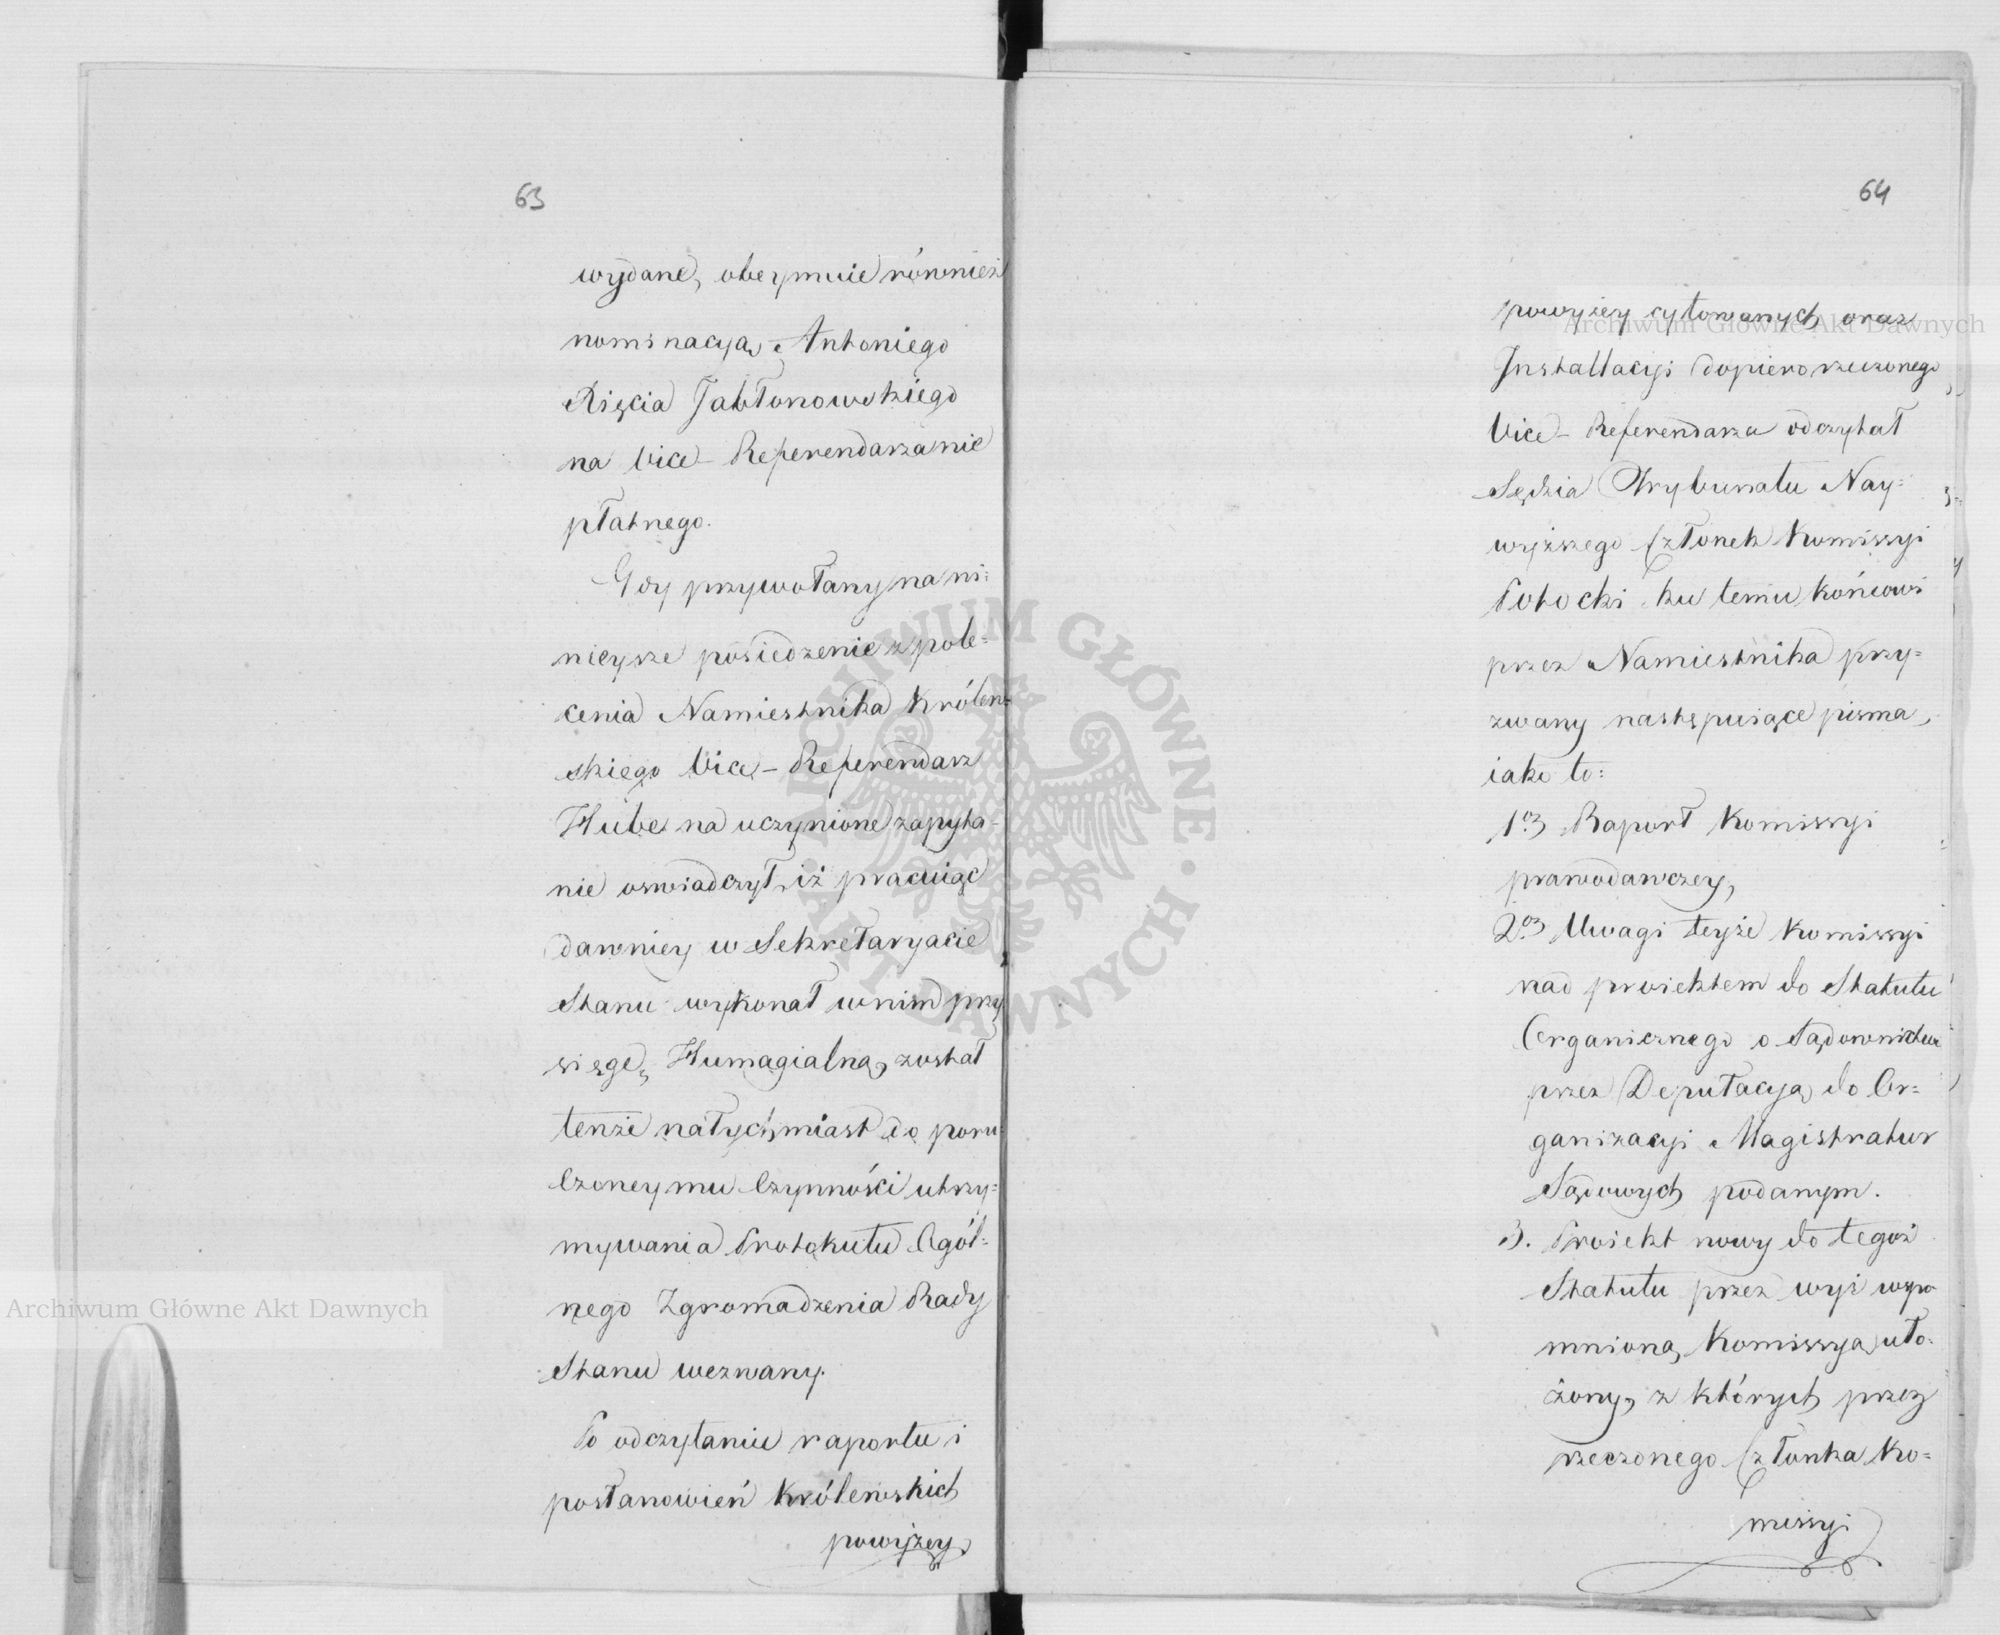 63
wydane, obeymuie również
nominacyą Antoniego
Xięcia Jabłonowskiego
na Vice-Referendarza nie
płatnego.
Gdy przywołany na ni:
nieysze posiedzenie z pole=
cenia Namiestnika Królew=
skiego Vice-Referendarz
Hube na uczynione zapyta-
nie oswiadczył, iż pracuiąc
dawniey w Sekretaryacie
Stanu wykonał w nim przy
sięgę Homagialną, został
tenże natychmiast do poru=
czoney mu Czynności utrzy=
mywania Protokułu Ogól=
nego Zgromadzenia Rady
Stanu wezwany.
Po odczytaniu raportu i
postanowień Królewskich
powyżey
64
powyżey cytowanych oraz
Installacyi dopiero rzeczonego
Vice-Referendarza odczytał
Sędzia Trybunału Nay=
wyższego Członek Komissyi
Potocki ku temu końcowi
przez Namiestnika przy=
zwany następuiące pisma,
iako to:
1o Raport Komissyi
prawodawczey,
2o Uwagi teyże Komissyi
nad proiektem do Statutu
Organicznego o Sądownictwie
przez Deputacyą do Or=
ganizacyi Magistratur
Sądowych podanym.
3. Proiekt nowy do tegoż
Statutu przez wyż wspo
mnioną Komissyą uło=
żony, z których przez
rzeczonego Członka Ko=
missyi
Archiwum Główne Akt Dawnych
Archiwum Główne Akt Dawnych
ARCHIWUM GŁÓWNE · AKT DAWNYCH ·